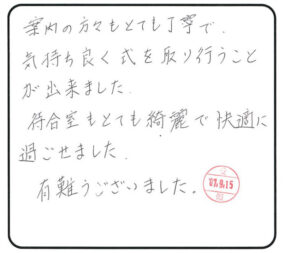 案内の方々もとても丁寧で.
気持ち良く式を取り行うこと
が出来ました.
待合室もとても綺麗で快適に
過ごせました.
有難うございました.